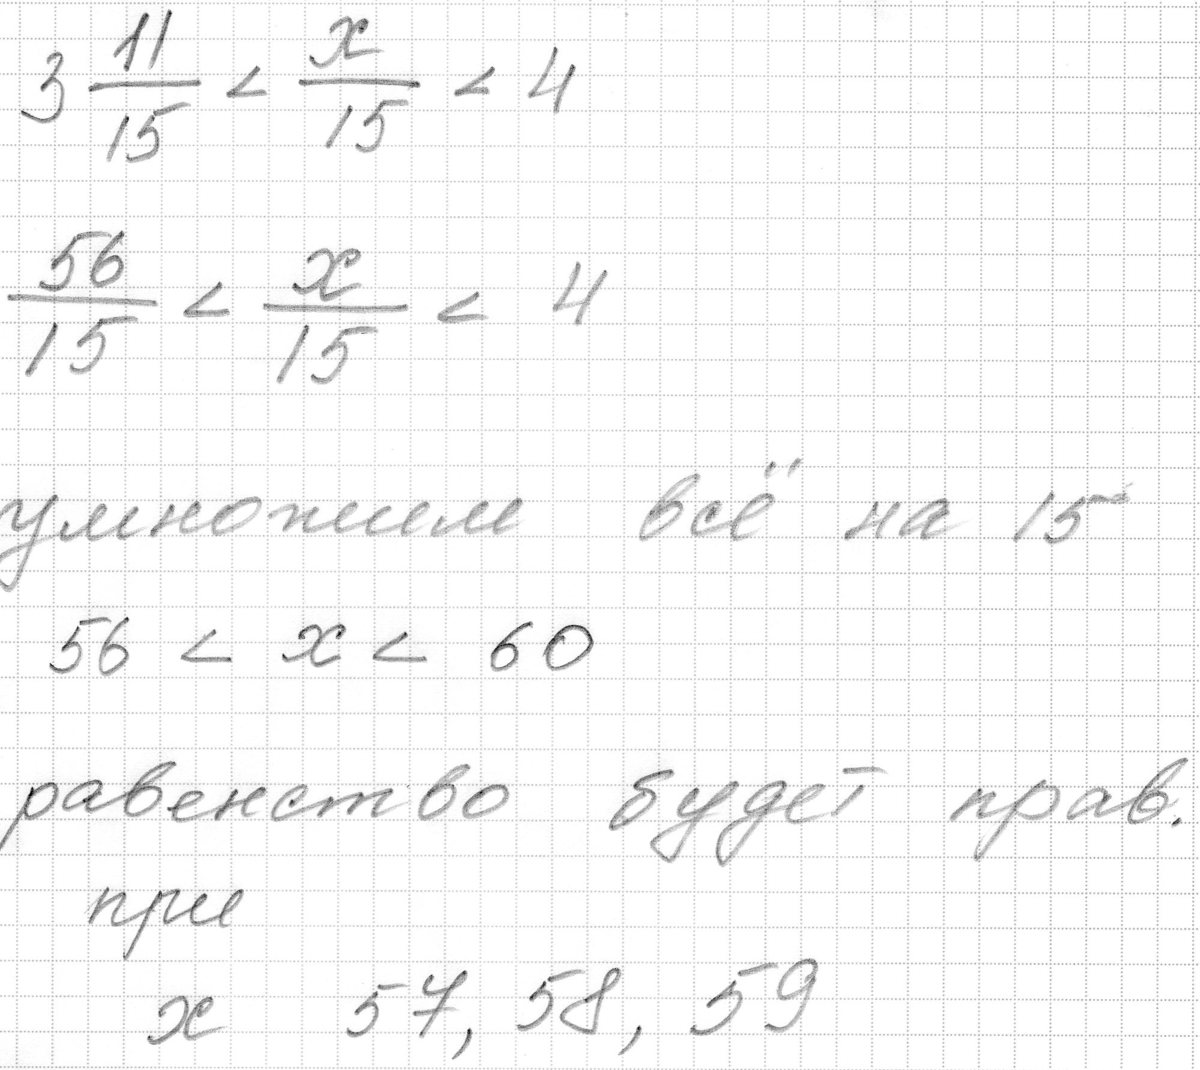 3 11/15 < x/15 < 4
56/15 < x/15 < 4
умножим всё на 15
56 < x < 60
равенство будет прав.
при
x 57, 58, 59